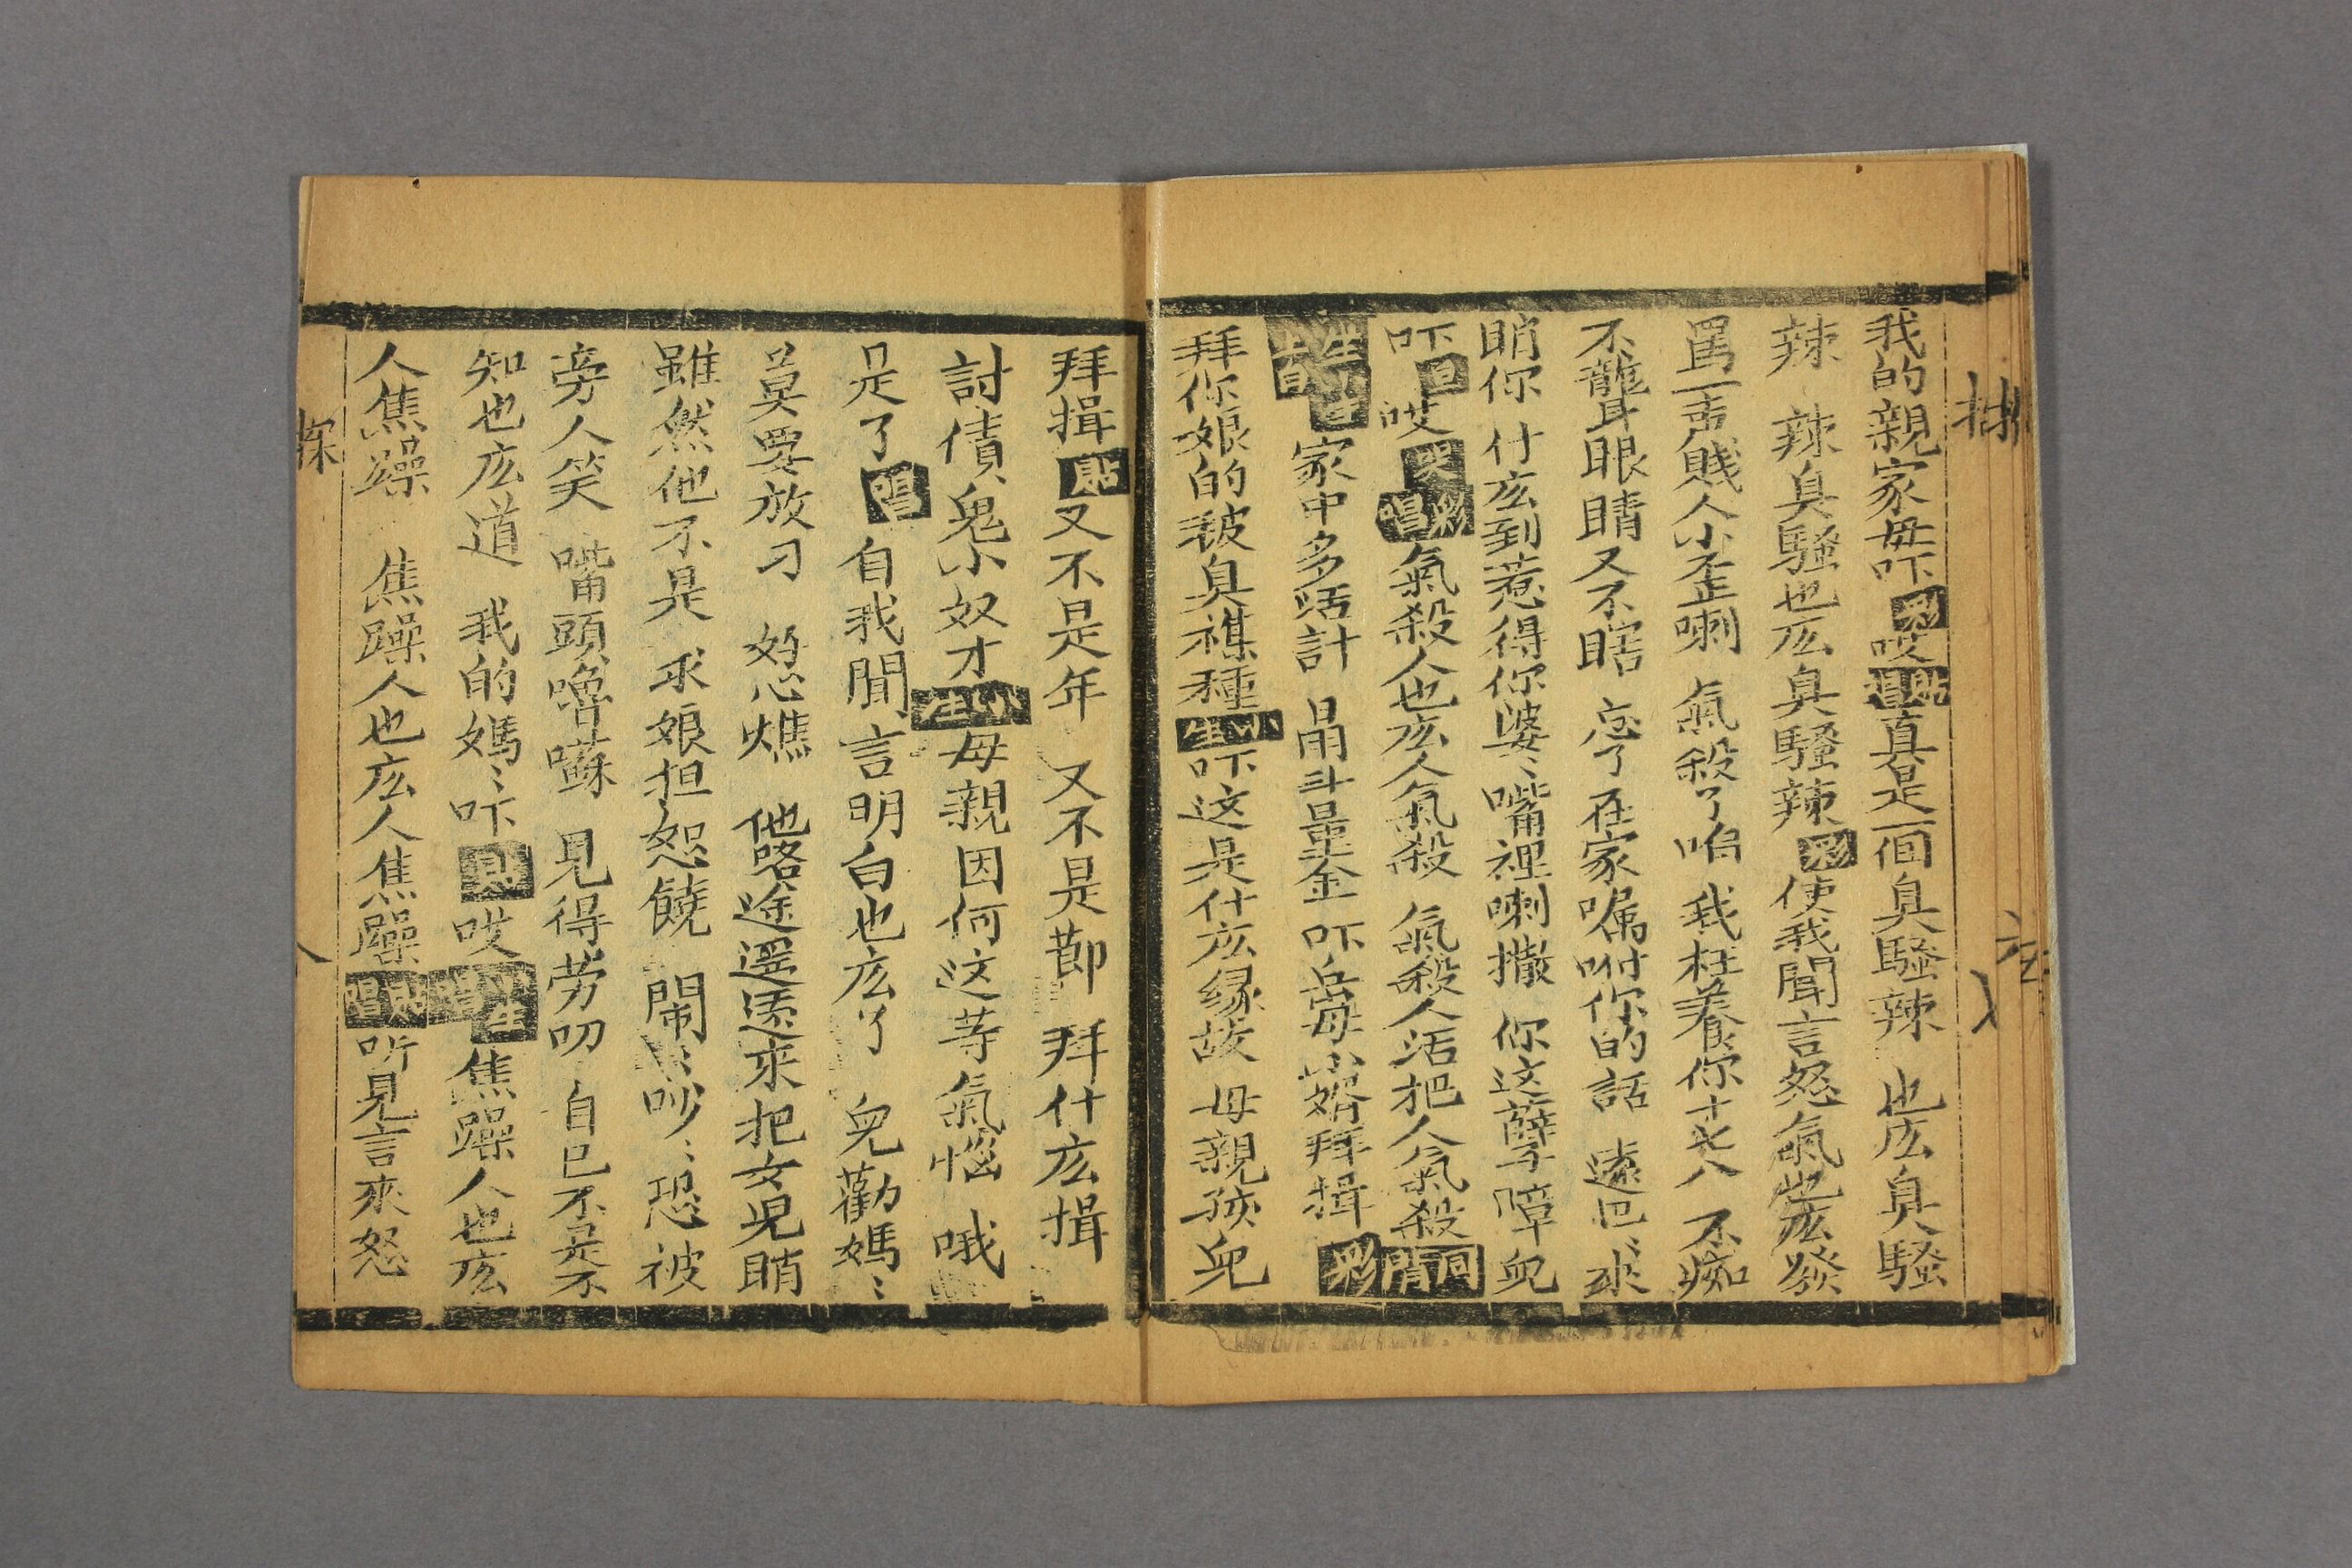 我的親家母吓彩哎貼唱真是一個臭騷辣 也庅臭騷
辣 辣臭騷也庅臭騷辣彩使我聞言怒氣也庅發
罵一声賤人小歪喇 氣殺了咱 我枉养你十七八 不痴
不聾耳眼睛又不瞎 忘了在家嘱咐你的話 遠巴巴來
睄你 什庅到惹得你婆〻嘴裡喇撒 你这孽障兒
吓旦哎哭彩唱氣殺人也庅人氣殺 氣殺人活把人氣殺同
家中多活計 鬧斗量金 吓岳母小婿拜揖彩
拜你娘的穀臭雜種小生吓这是什庅缘故 母親孩兒
拜揖貼又不是年 又不是節 拜什庅揖
討債鬼小奴才小生母親因何这等氣惱 哦
是了唱自我聞言明白也庅了 兒勸媽〻
莫要放刁 怒心燋 他路途遥遥來把女兒睄
雖然他不是 求娘担恕饒 鬧〻吵〻恐被
旁人笑 嘴頭嚕囌 見得劳叨 自己不是不
知也庅道 我的媽〻吓貼哎小生唱焦躁人也庅
人焦躁 焦躁人也庅人焦躁貼唱听見言來怒
探